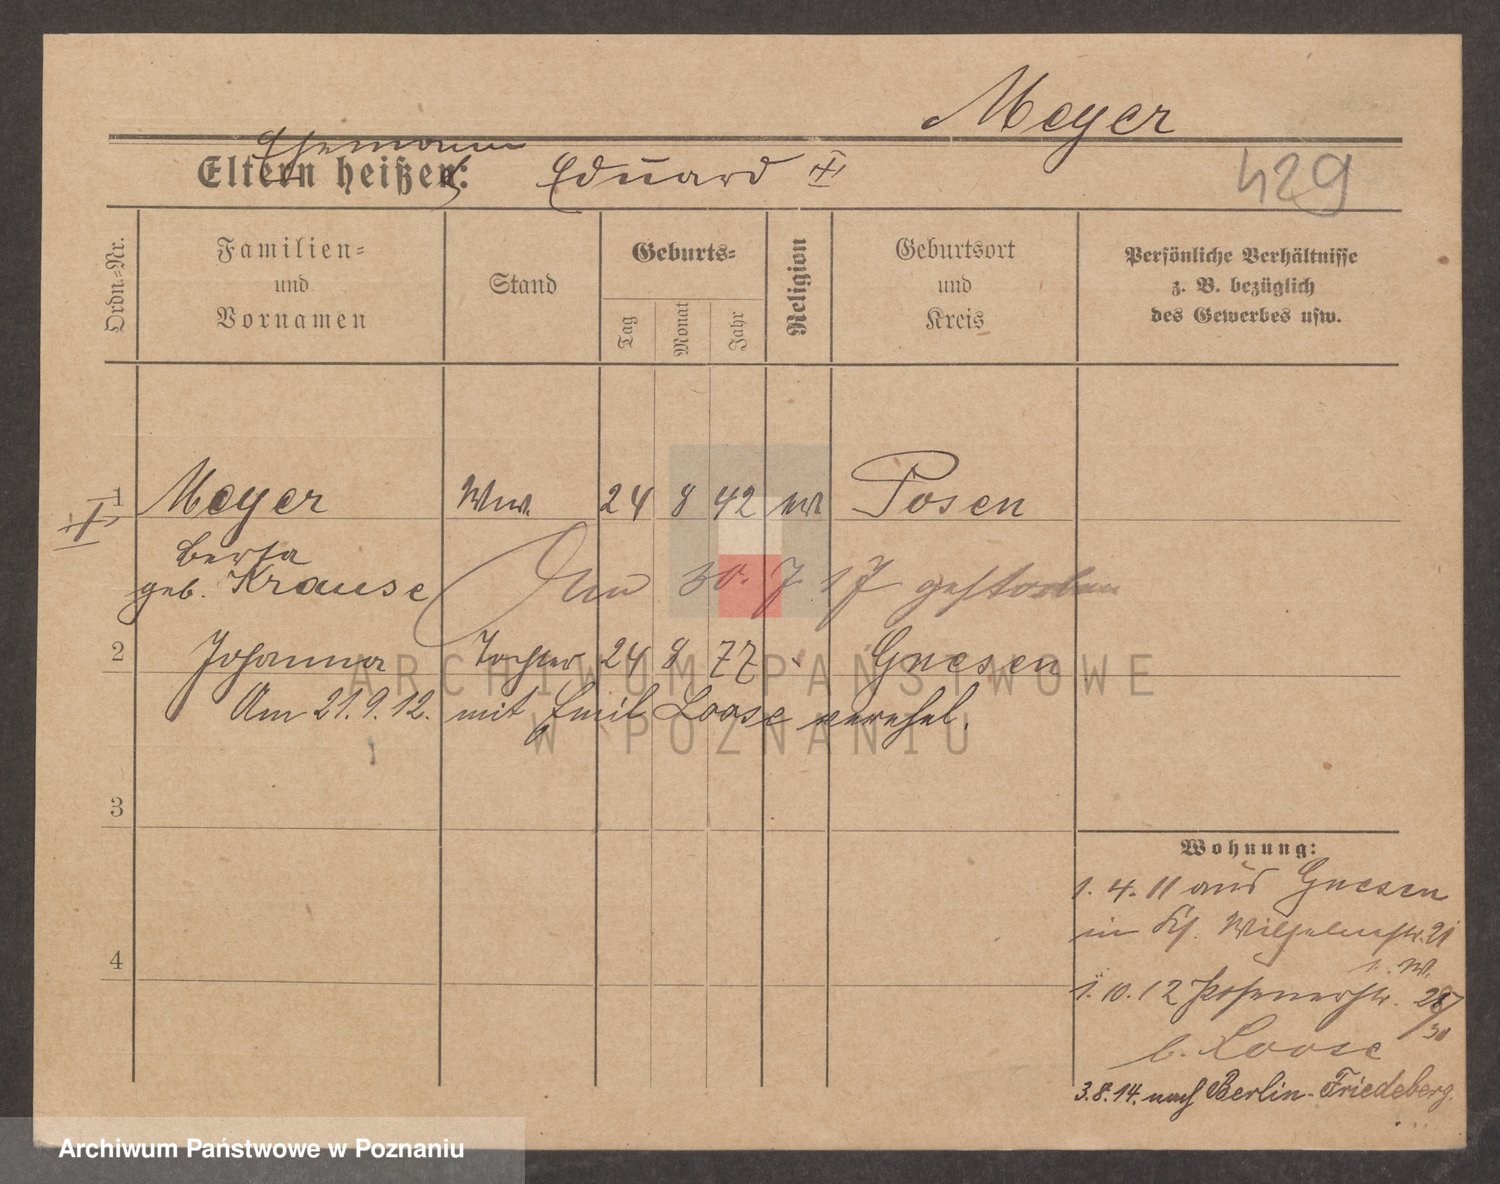 Meyer
Ehemann
Eltern heißen: Eduard
429
Ordn.-Nr.
Familien-
und
Vornamen
Stand
Geburts-
Tag
Monat
Jahr
Religion
Geburtsort
und
Kreis
Persönliche Verhältnisse
z. B. bezüglich
des Gewerbes usw.
1 Meyer Ww. 24 8 42 Posen
Berta
geb. Krause
30. 7. 17 gestorben
2 Johanna Tochter 24 8 77 Gnesen
Am 21.9.12. mit Emil Loose verehel.
3
4
Wohnung:
1. 4. 11 aus Gnesen
in Wilhelmstr. 21
1. 10. 12 Posenerstr. 28/30
b. Loose
3.8.14. nach Berlin-Friedeberg.
ARCHIWUM PAŃSTWOWE
W POZNANIU
Archiwum Państwowe w Poznaniu